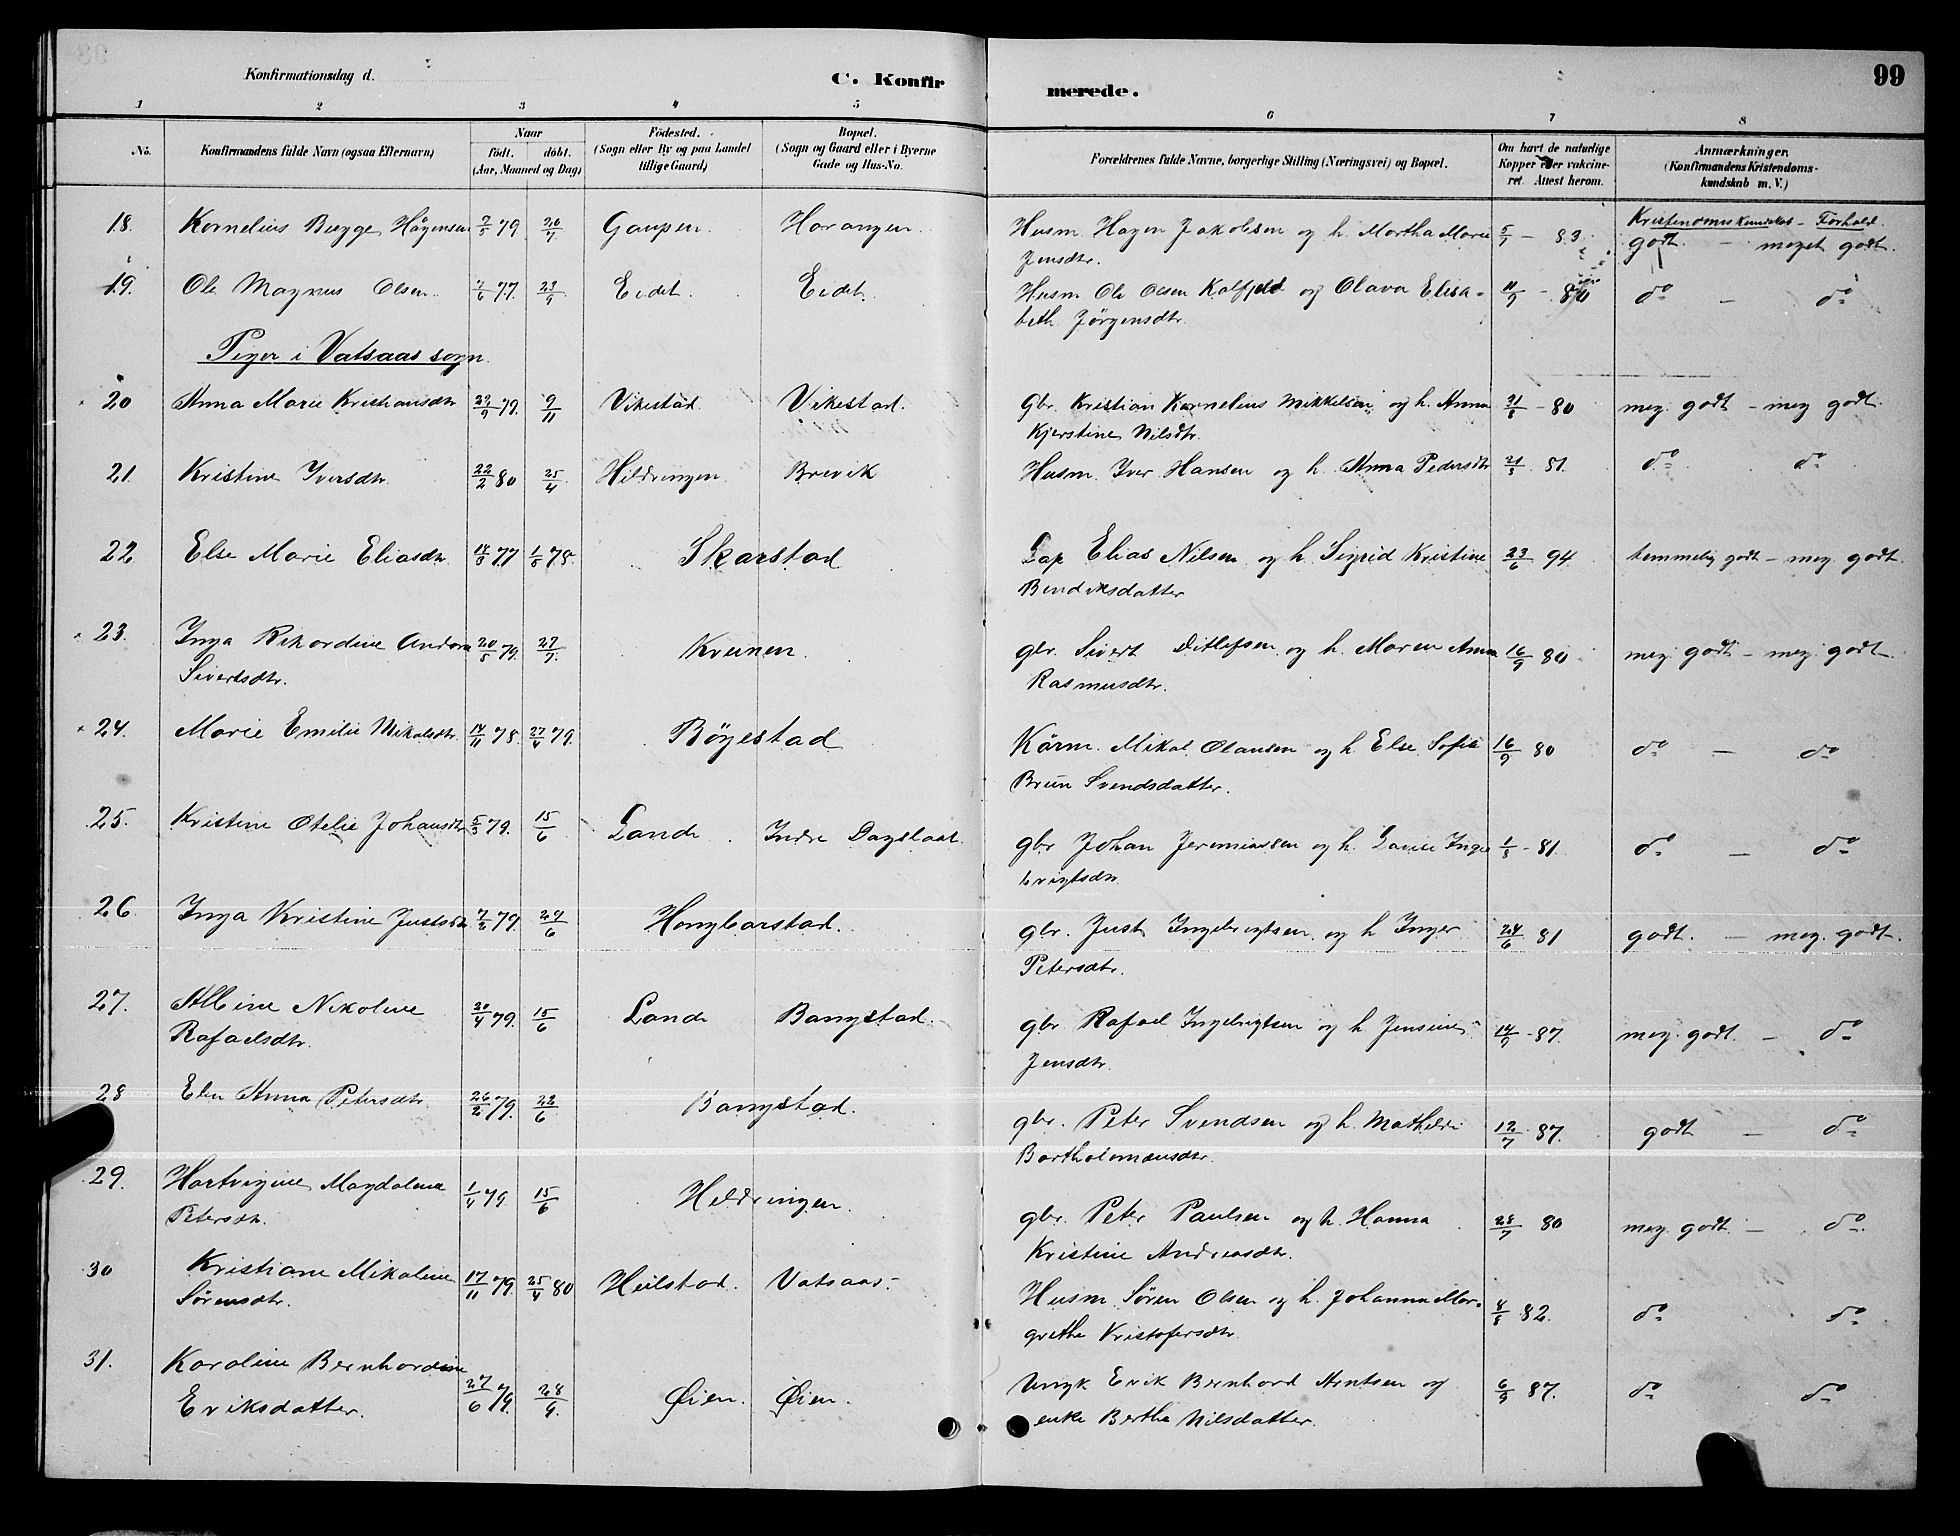 Konfirmationsdag d.
C. Konfirmerede.
99
1 2 3 4 5 6 7 8
No. Konfirmandens fulde Navn (ogsaa Efternavn) Naar født. døbt. (Aar, Maaned og Dag) Fødested. (Sogn eller By og paa Landet tillige Gaard) Bopæl. (Sogn og Gaard eller i Byerne Gade og Hus-No. Forældrenes fulde Navne, borgerlige Stilling (Næringsvei) og Bopæl. Om havt de naturlige Kopper eller vakcineret. Attest herom. Anmærkninger. (Konfirmandens Kristendomskundskab m. V.)
Kristendomskundskab - Forhold.
18. Kornelius Bugge Hågensen 2/5 79 20/7 Gaupen. Horangen. Husm. Hagen Jakobsen og h. Martha Marie Jensdtr. 5/7 - 83. godt. - meget godt.
19. Ole Magnus Olsen. 77 23/9 Eidet. Eidet. Husm Ole Olsen og Olava Elisabeth Jörgensdtr. 11/9 - 80 do - do
Piger i Vatsaas sogn.
20 Anna Marie Kristiansdtr 29/9 79. 9/11 Vikestad. Vikestad. gbr. Kristian Kornelius Mikkelsen og h. Anna Kjerstine Nilsdtr. 31/8 - 80 meg. godt - meg godt.
21. Kristine Iversdtr. 22/2 80 25/4 Hildringen. Brevik Husm. Iver Hansen og h. Anna Pedersdtr 21/8 81. do do
22 Else Marie Eliasdtr. 77 78. Skarstad Lap Elias Nilsen og h. Sigrid Kristine Bendiksdatter 23/6 94 temmelig godt - meg. godt.
23. Inga Rikardine Andora Sivertsdtr. 20/5 79. 27/7 Kveinen. gbr. Sivert Ditlefsen og h. Maren Anna Rasmusdtr. 16/9 80 meg. godt - meg. godt.
24. Marie Emilie Mikalsdtr. 14/11 78. 27/4 79. Bögestad Kårm. Mikal Olausen og h. Else Sofie Brun Svendsdatter. 16/9 80 do - do
25. Kristine Otelie Johansdtr 5/3 79. 15/6 Lande. Indre Dagslaat. gbr Johan Jeremiassen og h. Lovise Ingebrigtsdtr. 1/8 - 81. do - do
26 Inga Kristine Justsdtr 7/2 79. 29/6 Hongbarstad. gbr. Just Ingebrigtsen og h Inger Petersdtr. 24/6 81 godt. - meg. godt.
27. Albine Nikoline Rafaelsdtr. 20/4 79. 15/6 Lande Bangstad. gbr Rafael Ingebrigtsen og h Jensine Jensdtr. 14/9 - 87. meg. godt. - do
28 Elen Anna Petersdtr 26/2 79. 22/6 Bangstad. gbr. Peter Svendsen og h. Mathilde Bartholomæusdtr. 12/7 87. godt - do
29. Hartvigine Magdalena Petersdtr. 1/4 79. 15/6 Hildringen. gbr. Peter Paulsen og h. Hanna Kristine Andreasdtr. 28/7 80 meg. godt - do
30 Kristiane Mikaline Sørensdtr. 17/11 79. 25/4 80 Heilstad. Vatsaas. Husm Søren Olsen og h. Johanna Margrethe Kristofersdtr. 8/8 82. do do
31. Karoline Bernhardine Eriksdatter. 27/6 79. 28/9. Øien. Øien. Ungk Erik Bernhard Arntsen og enke Berthe Nilsdatter. 6/9 87. do do